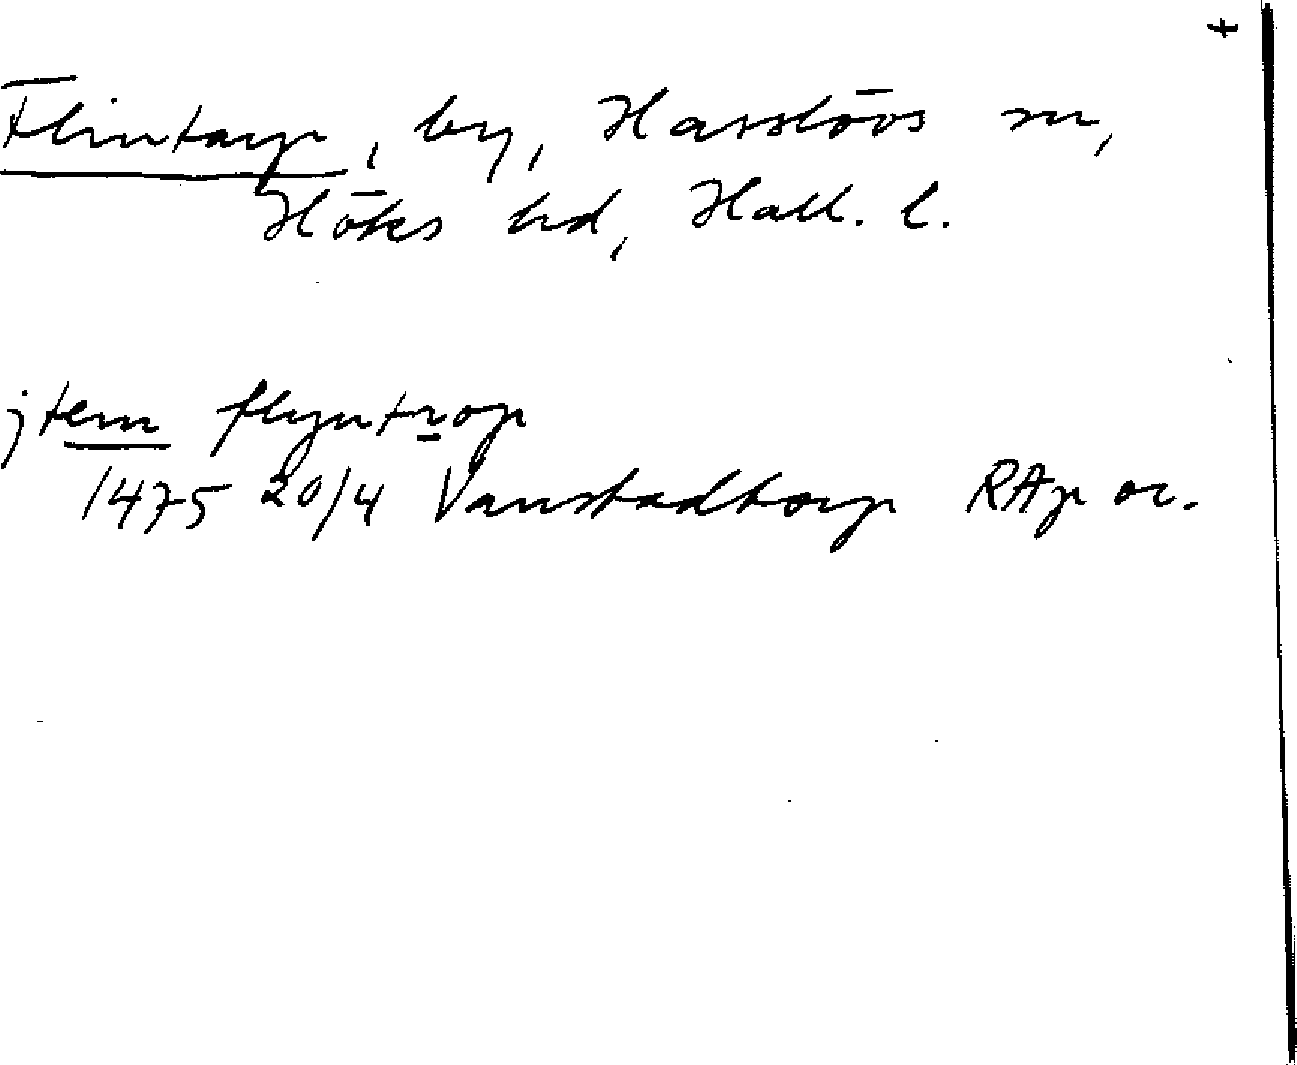 +
Flintarp, by, Hasslövs sn,
Höks hd, Hall. l.
jtem flyntrop
1475 20/4 Vanstadtorp RAp or.